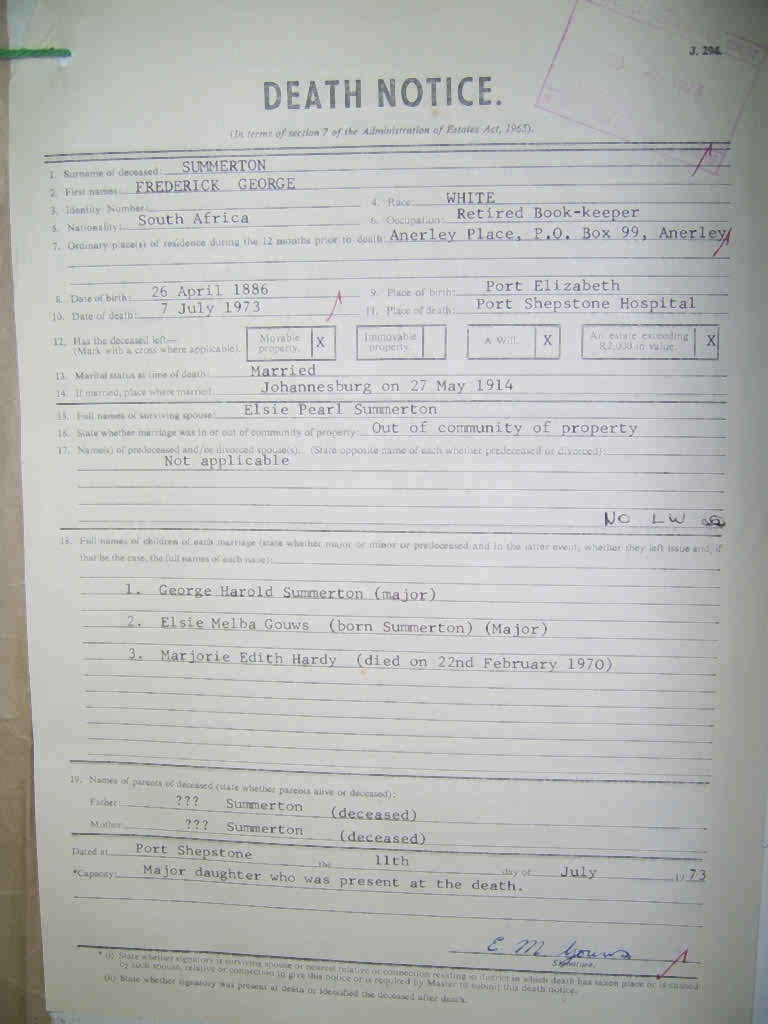 J. 294.
DEATH NOTICE.
(In terms of section 7 of the Administration of Estates Act, 1965).
1. Surname of deceased: SUMMERTON
2. First names: FREDERICK GEORGE
3. Identity Number: 4. Race: WHITE
5. Nationality: South Africa 6. Occupation: Retired Book-keeper
7. Ordinary place(s) of residence during the 12 months prior to death: Anerley Place, P.O. Box 99, Anerley
8. Date of birth: 26 April 1886 9. Place of birth: Port Elizabeth
10. Date of death: 7 July 1973 11. Place of death: Port Shepstone Hospital
12. Has the deceased left— Movable property. X Immovable property. A Will. X An estate exceeding R2,000 in value. X
(Mark with a cross where applicable).
13. Marital status at time of death: Married
14. If married, place where married: Johannesburg on 27 May 1914
15. Full names of surviving spouse: Elsie Pearl Summerton
16. State whether marriage was in or out of community of property: Out of community of property
17. Name(s) of predeceased and/or divorced spouse(s). (State opposite name of each whether predeceased or divorced):
Not applicable
NO LW
18. Full names of children of each marriage (state whether major or minor or predeceased and in the latter event, whether they left issue and, if
that be the case, the full names of each issue):
1. George Harold Summerton (major)
2. Elsie Melba Gouws (born Summerton) (Major)
3. Marjorie Edith Hardy (died on 22nd February 1970)
19. Names of parents of deceased (state whether parents alive or deceased):
Father: ??? Summerton (deceased)
Mother: ??? Summerton (deceased)
Dated at Port Shepstone the 11th day of July 1973
*Capacity: Major daughter who was present at the death.
E M Gouws
Signature.
* (i) State whether signatory is surviving spouse or nearest relative or connection residing in district in which death has taken place or is caused
by such spouse, relative or connection to give this notice or is required by Master to submit this death notice.
(ii) State whether signatory was present at death or identified the deceased after death.